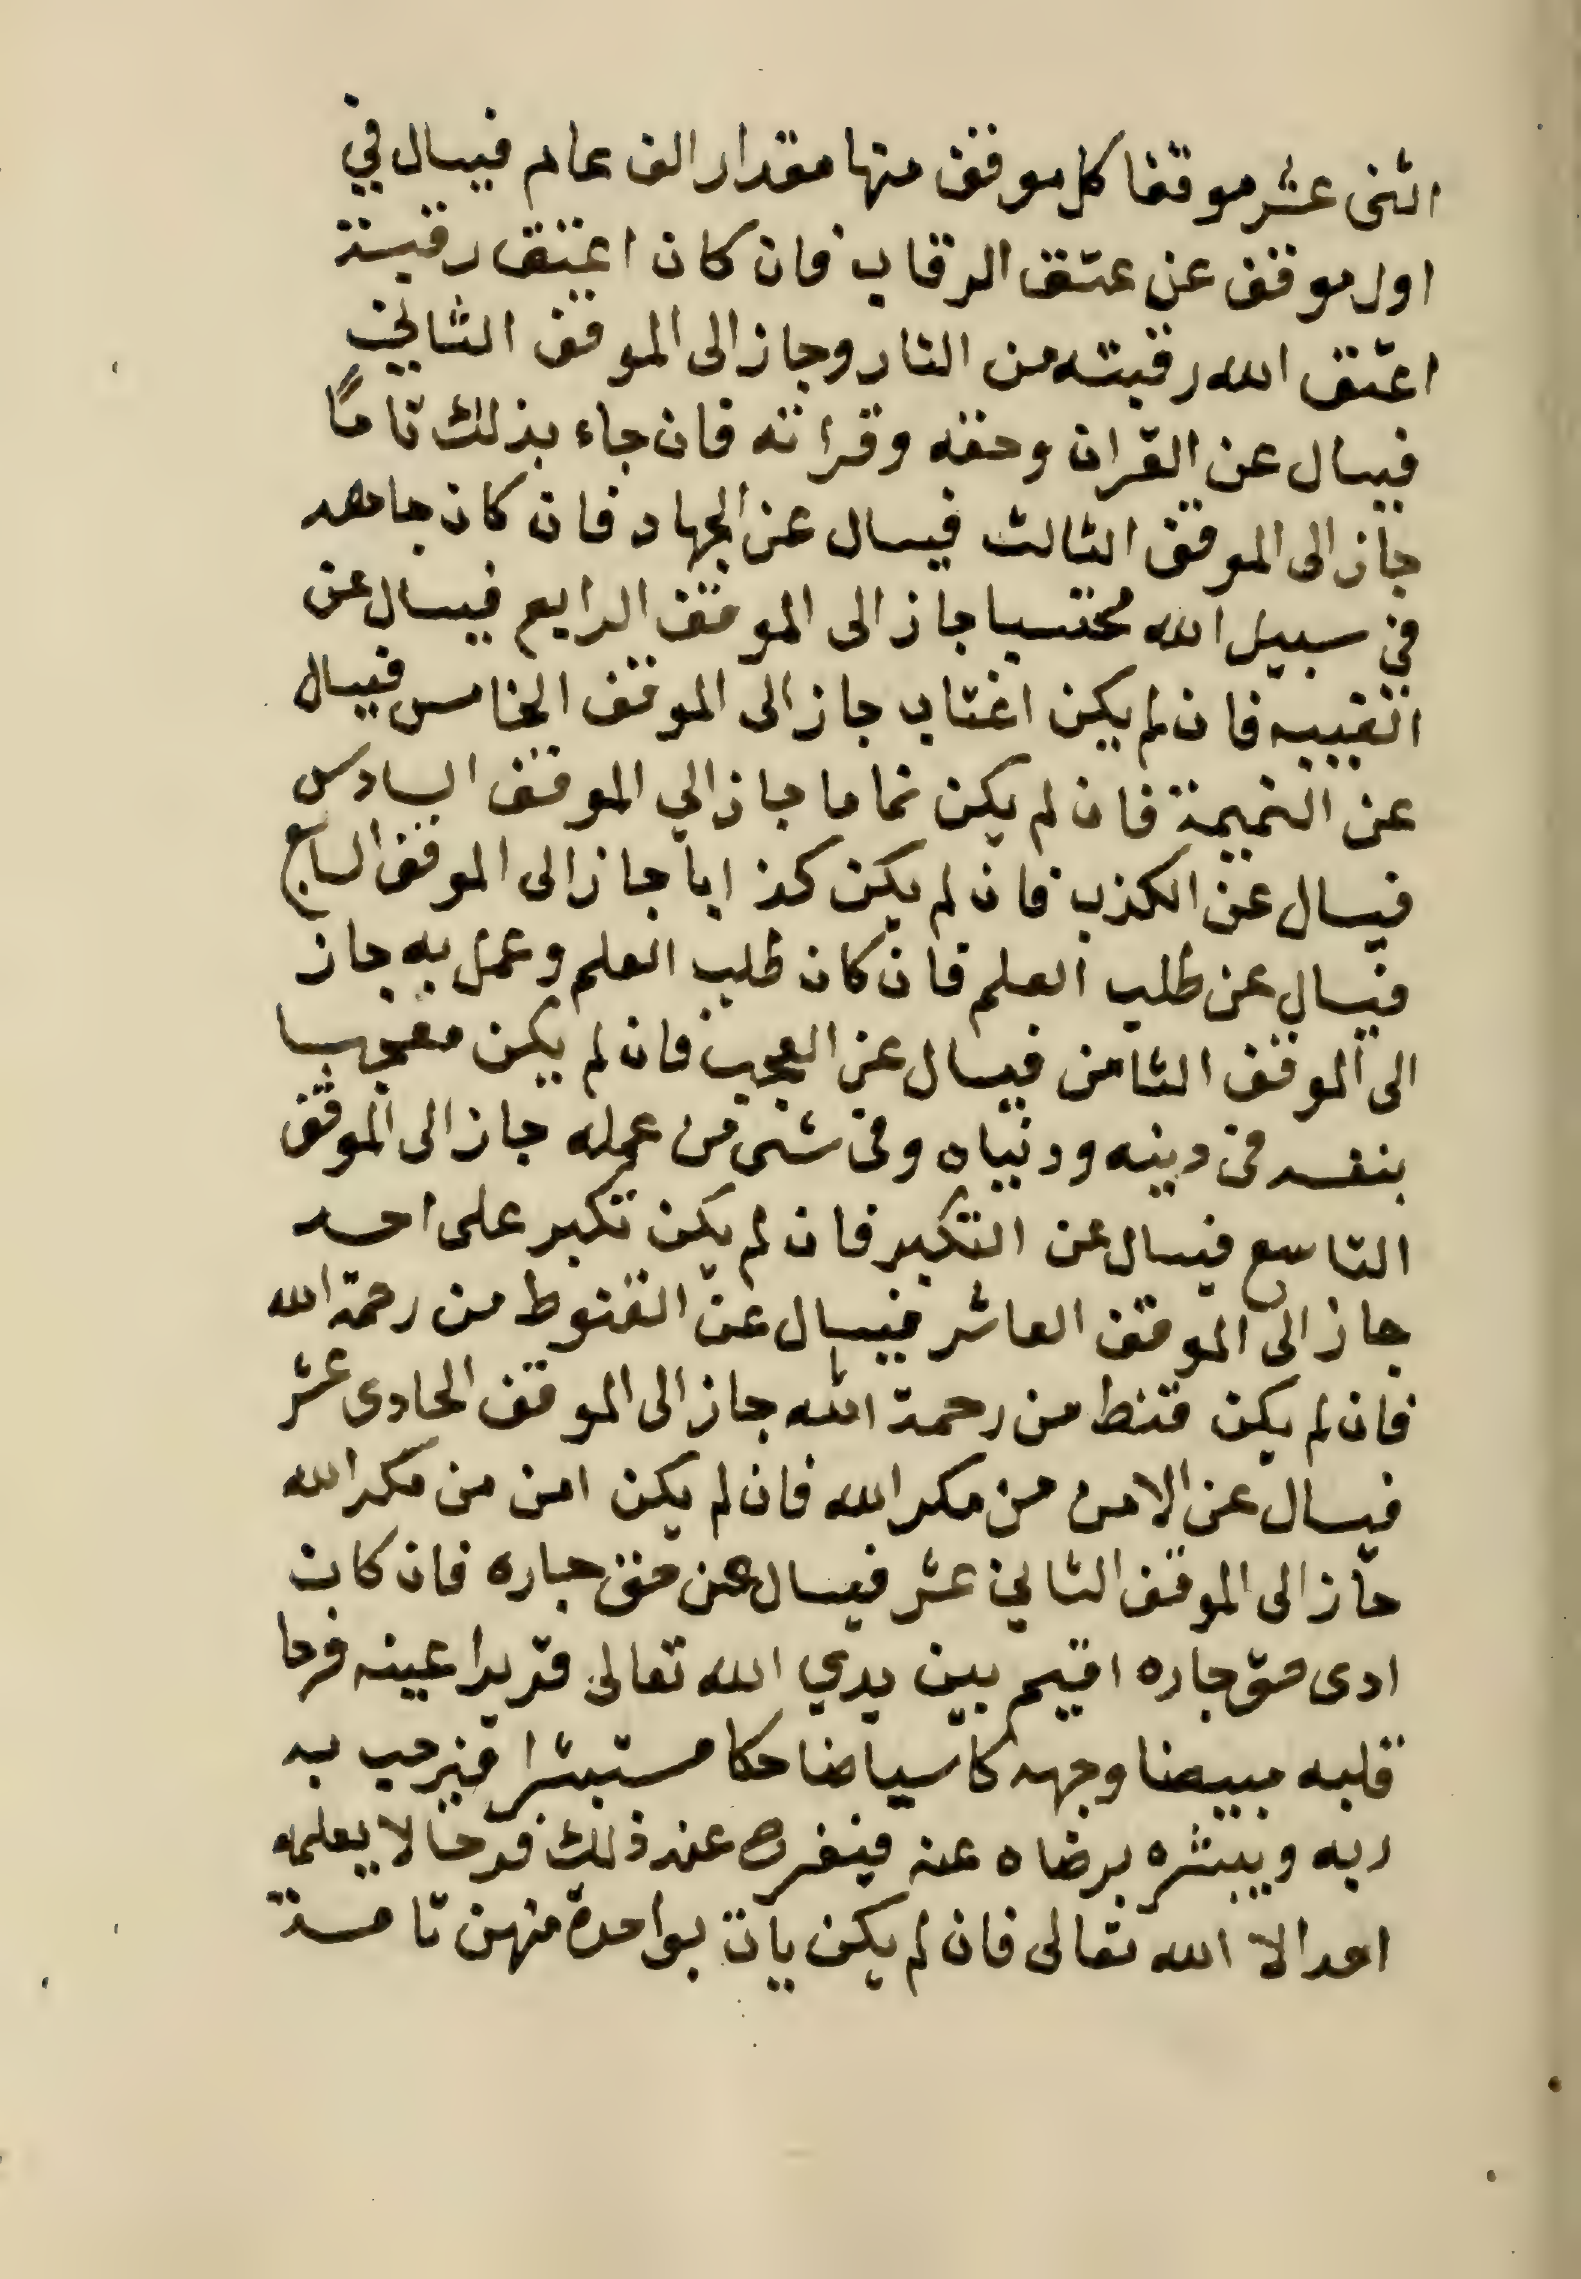 اثنى عشر موقفا كل موقف منها مقدار الف عام فيسال في
اول موقف عن عتق الرقاب فان كان اعتق رقبة
اعتق الله رقبته من النار وجاز الى الموقف الثاني
فيسال عن القران وحقه وقراته فان جاء بذلك تامًا
جاز الى الموقف الثالث فيسال عن الجهاد فان كان جاهد
في سبيل الله محتسبا جاز الى الموقف الرابع فيسال عن
الغيبه فان لم يكن اغتاب جاز الى الموقف الخامس فيسال
عن النميمة فان لم يكن نماما جاز الي الموقف السادس
فيسال عن الكذب فان لم يكن كذابا جاز الى الموقف السابع
فيسال عن طلب العلم فان كان طلب العلم وعمل به جاز
الى الموقف الثامن فيسال عن العجب فان لم يكن معجبا
بنفسه فى دينه ودنياه وفى شى من عمله جاز الى الموقف
التاسع فيسال عن التكبر فان لم يكن تكبر على احد
جاز الى الموقف العاشر فيسال عن القنوط من رحمة الله
فان لم يكن قنط من رحمة الله جاز الى الموقف الحادى عشر
فيسال عن الامن من مكر الله فان لم يكن امن من مكر الله
جاز الى الموقف الثاني عشر فيسال عن حق جاره فان كان
ادى حق جاره اقيم بين يدي الله تعالى قريرا عينه فرحا
قلبه مبيضا وجهه كاسيا ضاحكا مستبشرا فيرحب به
ربه ويبشره برضاه عنه فيفرح عند ذلك فرحا لا يعلمه
احد الا الله تعالى فان لم يكن يات بواحدة منهن تامة